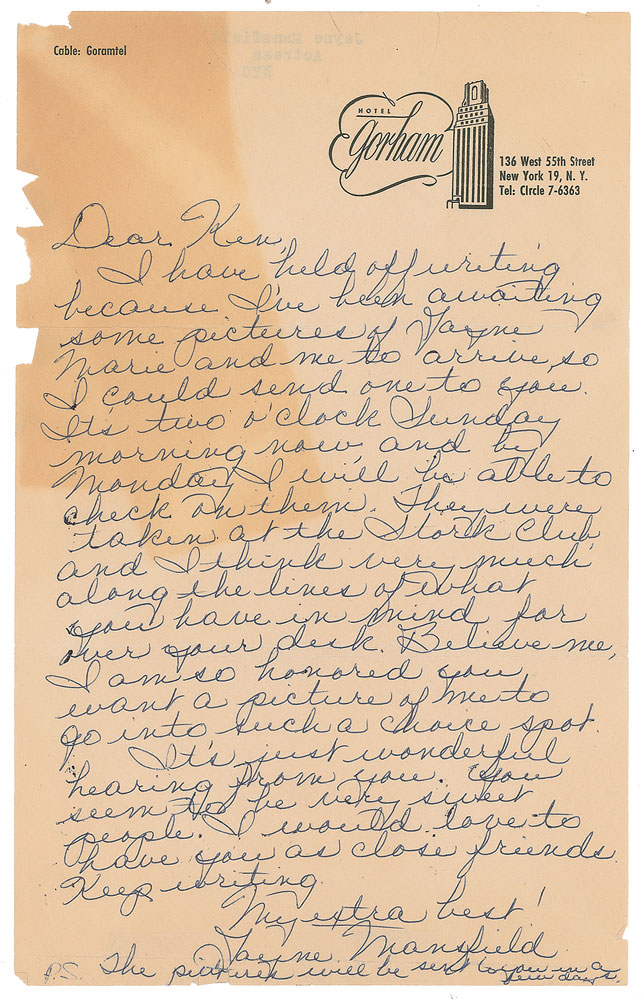 Jayne Mansfield
Actress
NYC
Cable: Goramtel
HOTEL
Gorham
136 West 55th Street
New York 19, N. Y.
Tel: CIrcle 7-6363
Dear Ken,
I have held off writing
because I've been awaiting
some pictures of Jayne
Marie and me to arrive, so
I could send one to you.
It's two o'clock Sunday
morning now, and by
Monday I will be able to
check on them. They were
taken at the Stork Club
and I think very much
along the lines of what
you have in mind for
over your desk. Believe me,
I am so honored you
want a picture of me to
go into such a choice spot.
It's just wonderful
hearing from you. You
seem to be very sweet
people. I would love to
have you as close friends.
Keep writing.
My extra best!
Jayne Mansfield
P.S. The pictures will be sent to you in a
few days.